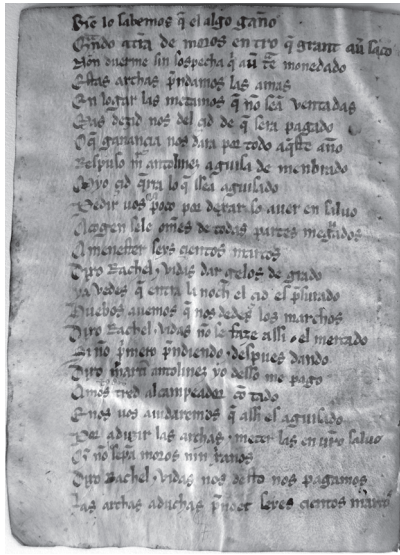 Biẽ lo sabemos q̃ el algo gaño
Q̃ndo a tr̃a de moros entro q̃ grant au̾ saco
Non duerme sin sospecha q̃ au̾ trae monedado
Estas archas p̃ndamos las amas
En logar las metamos q̃ no seã ventadas
Mas dezid nos del cid de q̃ sera pagado
O q̃ ganançia nos dara por todo aq̃ste año
Respuso m̃ antolinez a guisa de menbrado
Myo çid q̃rra lo q̃ ssea aguisado
Pedir uos a poco por dexar so auer en saluo
Acogen sele om̃es de todas partes meg̃uados
A menester seys çientos marcos
Dixo Rachel ⸱ vidas dar gelos de grado
Ya vedes q̃ entra la noch el çid es p̃surado
Huebos auemos q̃ nos dedes los marchos
Dixo Rachel ⸱ vidas nõ se faze assi el mercado
Si nõ p̃mero p̃ndiendo ⸱ despues dando
Dixo m̃arti antolinez yo desso me pago
Amos tred al campeador cõtado
E nos uos aiudaremos q̃ assi es aguisado
Por aduzir las archas ⸱ meter las en ur̃o saluo
Q̃ nõ lo sepã moros nin xp̃anos
Dixo Rachel ⸱ vidas nos desto nos pagamos
Las archas aduchas p̃ndet seyes çientos marcos